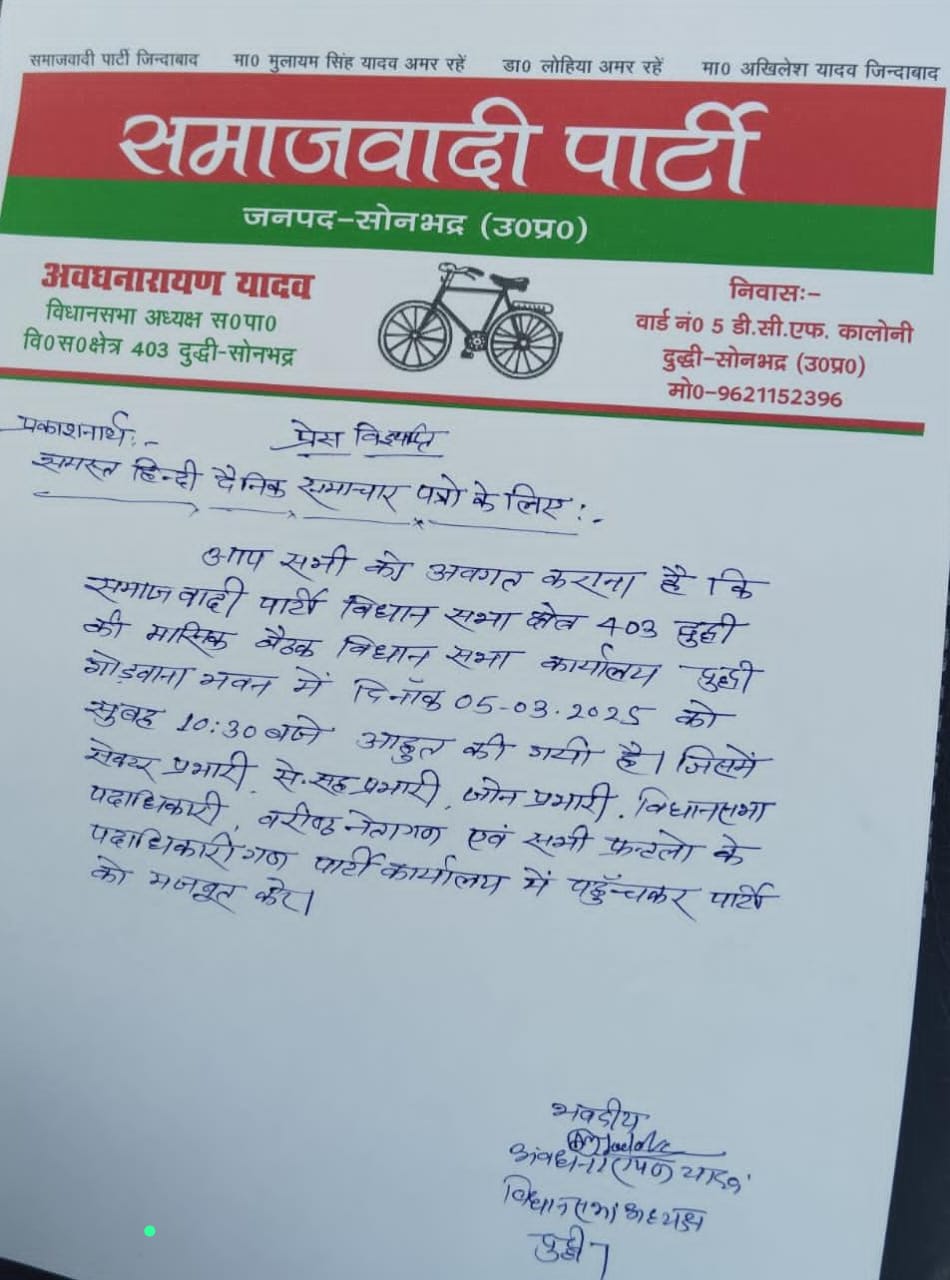 समाजवादी पार्टी जिन्दाबाद मा0 मुलायम सिंह यादव अमर रहें डा0 लोहिया अमर रहें मा0 अखिलेश यादव जिन्दाबाद
समाजवादी पार्टी
जनपद-सोनभद्र (उ0प्र0)
अवधनारायण यादव
विधानसभा अध्यक्ष स0पा0
वि0स0क्षेत्र 403 दुद्धी-सोनभद्र
निवासः-
वार्ड नं0 5 डी.सी.एफ. कालोनी
दुद्धी-सोनभद्र (उ0प्र0)
मो0-9621152396
प्रकाशनार्थ:- प्रेस विज्ञप्ति
समस्त हिन्दी दैनिक समाचार पत्रो के लिए:-
आप सभी को अवगत कराना है कि
समाजवादी पार्टी विधान सभा क्षेत्र 403 दुद्धी
की मासिक बैठक विधान सभा कार्यालय दुद्धी
गोडवाना भवन में दिनाँक 05-03-2025 को
सुबह 10:30 बजे आहुत की गयी है। जिसमें
सेक्टर प्रभारी, से.सह प्रभारी, जोन प्रभारी, विधानसभा
पदाधिकारी, वरीष्ठ नेतागण एवं सभी फ्रन्टलो के
पदाधिकारीगण पार्टी कार्यालय में पहुँन्चकर पार्टी
को मजबूत करे।
भवदीय
अवधनारायण यादव
विधानसभा अध्यक्ष
दुद्धी